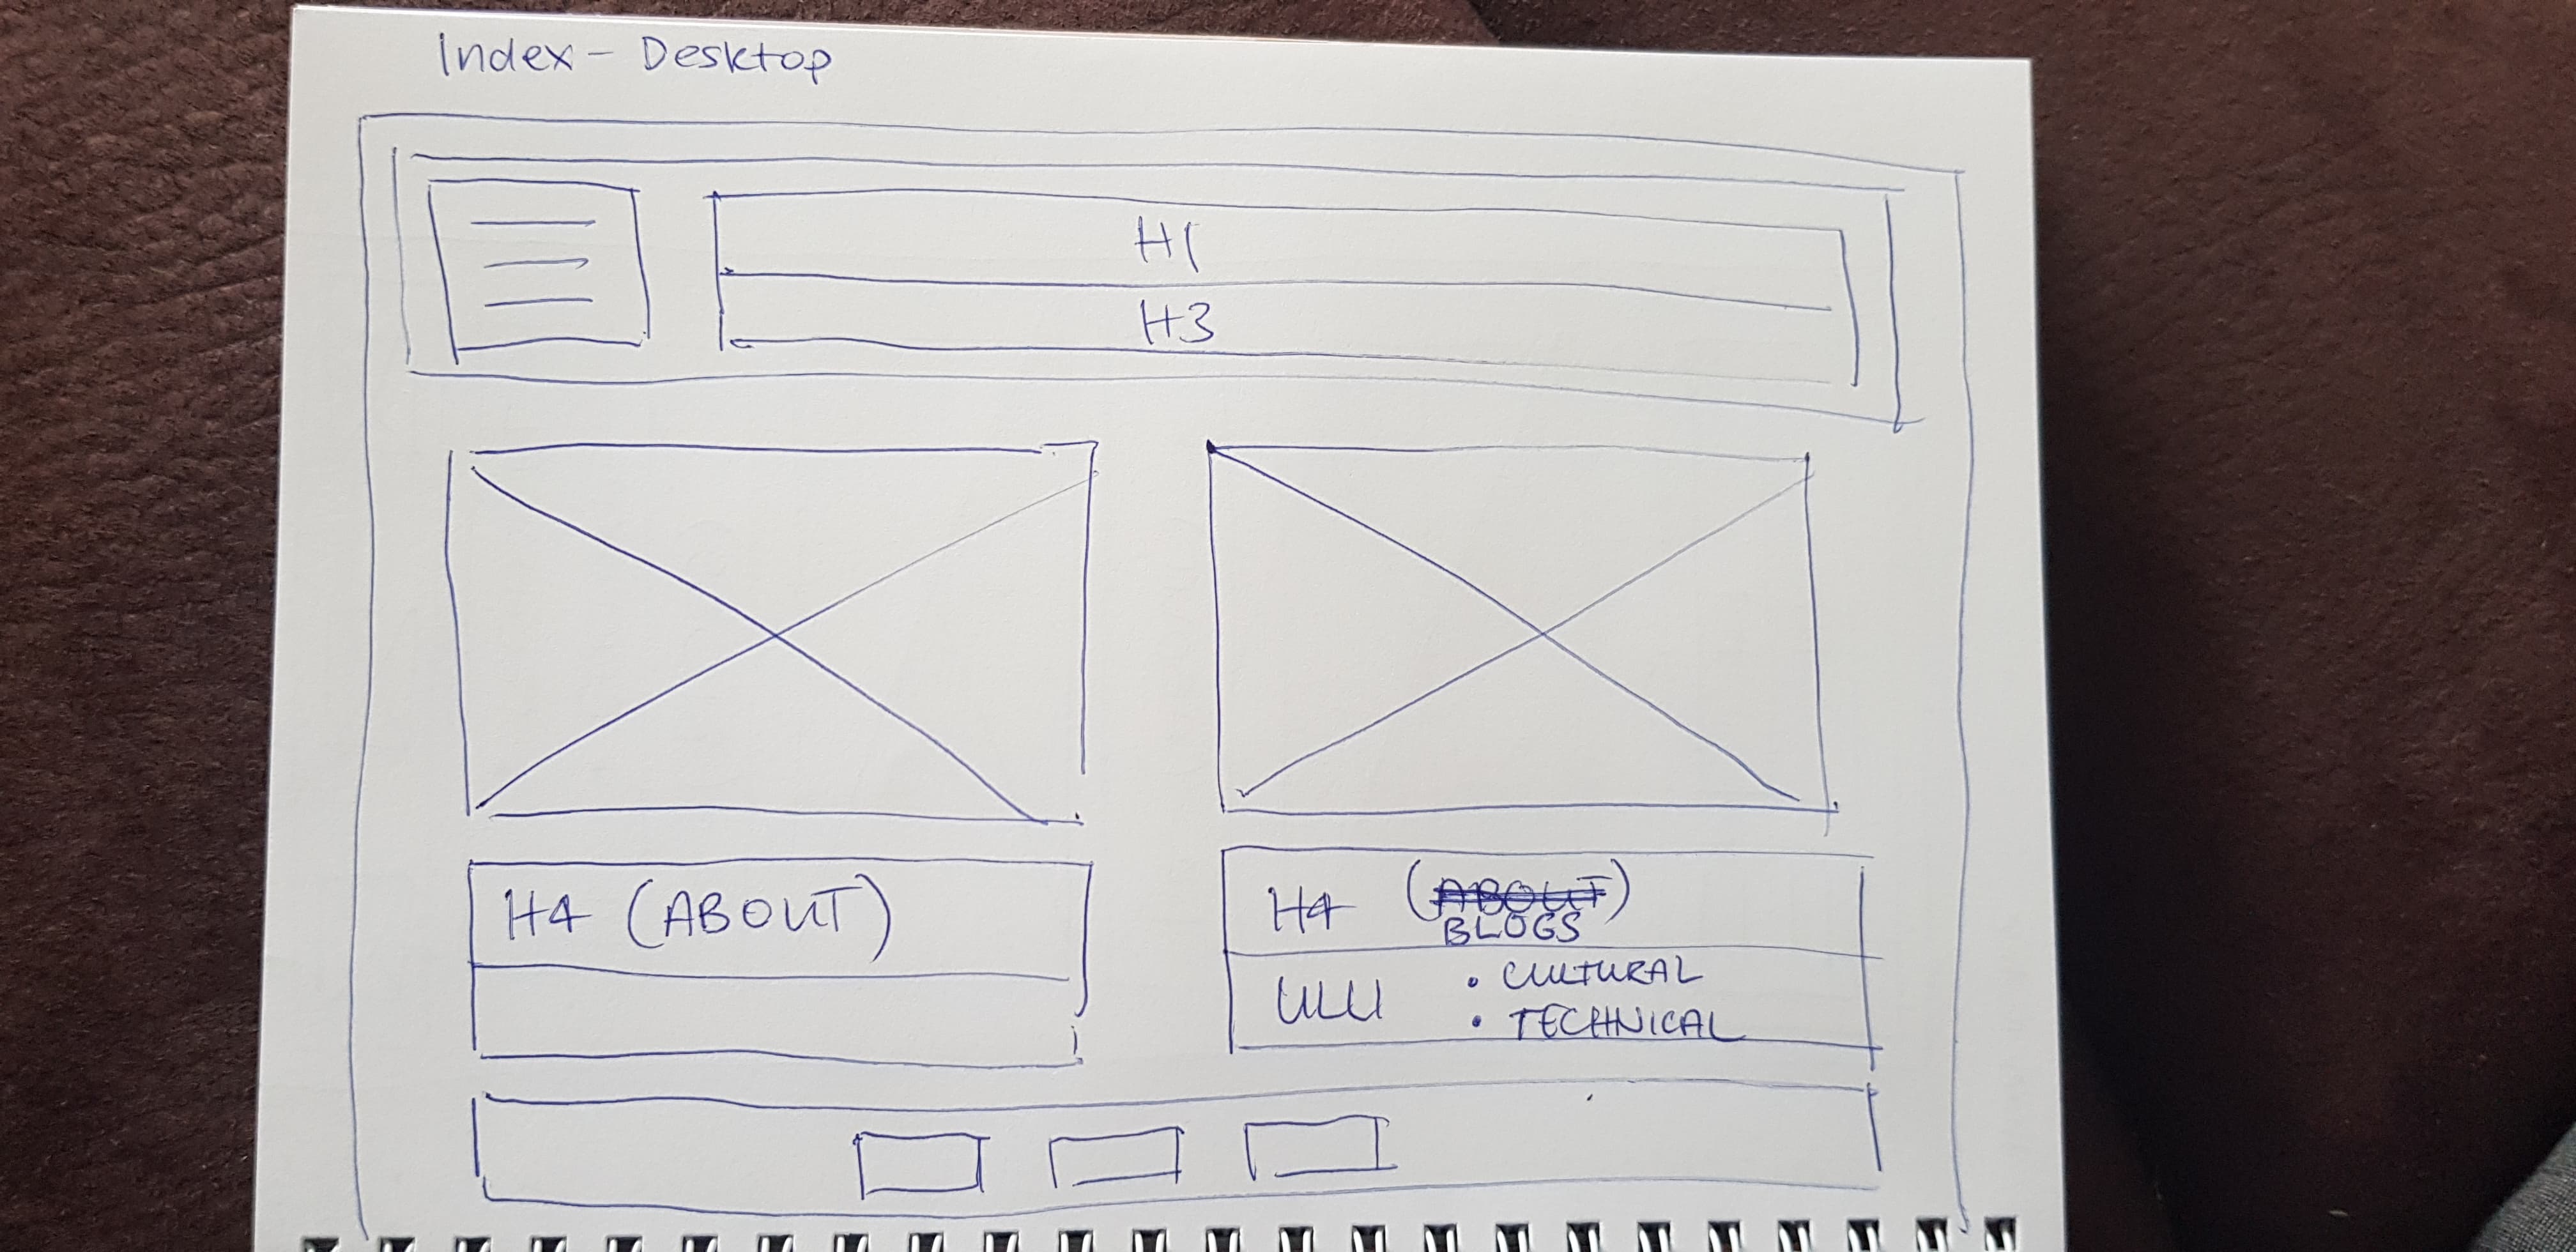 Index - Desktop
H1
H3
H4 (ABOUT)
H4 (ABOUT)
BLOGS
• CULTURAL
• TECHNICAL